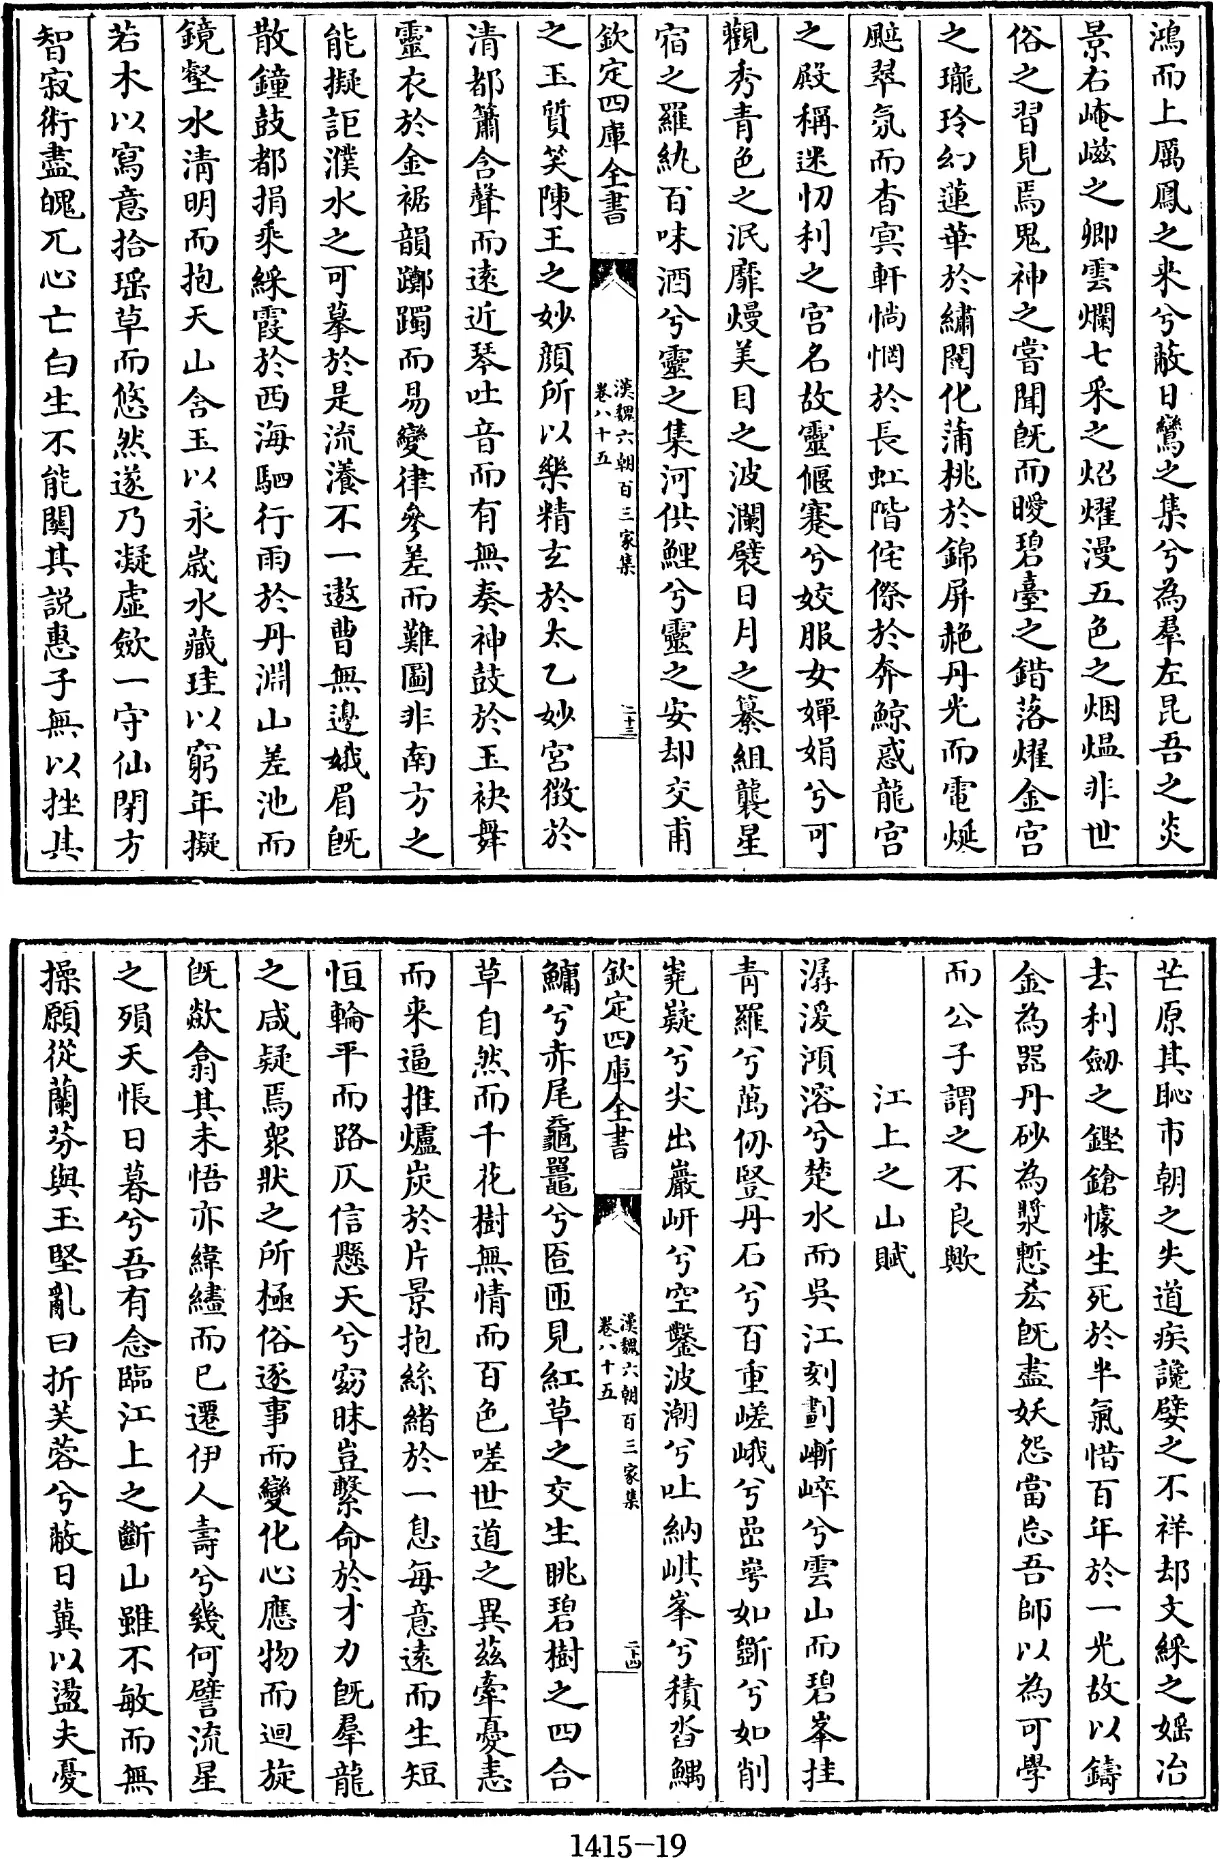 鴻而上厲鳳之来兮蔽日鸞之集兮為羣左昆吾之炎
景右崦嵫之卿雲爛七采之炤燿漫五色之烟熅非世
俗之習見焉鬼神之嘗聞既而曖碧臺之錯落燿金宮
之瓏玲幻蓮華於繡闥化蒲桃於錦屏赩丹光而電烻
颭翠氛而杳㝠軒惝惘於長虹階侘傺於奔鯨惑龍宮
之殿稱迷忉利之宮名故靈偃蹇兮姣服女嬋娟兮可
觀秀青色之泯靡熳美目之波瀾襞日月之纂組襲星
宿之羅紈百味酒兮靈之集河供鯉兮靈之安却交甫
欽定四庫全書
漢魏六朝百三家集
卷八十五
二十三
之玉質笑陳王之妙顔所以樂精玄於太乙妙宮徴於
清都簫含聲而遠近琴吐音而有無奏神鼓於玉袂舞
靈衣於金裾韻躑躅而易變律參差而難圖非南方之
能擬詎濮水之可摹於是流瀁不一遨曹無邊娥眉既
散鐘鼓都捐乘綵霞於西海駟行雨於丹淵山差池而
鏡壑水清明而抱天山含玉以永歲水藏珪以窮年擬
若木以寫意拾瑶草而悠然遂乃凝虚斂一守仙閉方
智寂術盡魄兀心亡白生不能闗其説惠子無以挫其
芒原其恥市朝之失道疾讒嬖之不祥却文綵之婬冶
去利劒之鏗鎗懅生死於半氣惜百年於一光故以鑄
金為器丹砂為漿慙忿既盡妖怨當忘吾師以為可學
而公子謂之不良歟
江上之山賦
潺湲澒溶兮楚水而吳江刻劃嶃崒兮雲山而碧峯挂
青羅兮萬仞豎丹石兮百重嵯峨兮嵒崿如斵兮如削
嶤嶷兮尖出巖岍兮空鑿波潮兮吐納㟓峯兮積沓鰅
欽定四庫全書
漢魏六朝百三家集
卷八十五
二十四
鱅兮赤尾龜鼉兮匼匝見紅草之交生眺碧樹之四合
草自然而千花樹無情而百色嗟世道之異兹牽憂恚
而来逼推爐炭於片景抱絲緒於一息每意遠而生短
恒輪平而路仄信懸天兮窈昧豈繫命於才力既羣龍
之咸疑焉衆狀之所極俗逐事而變化心應物而迴旋
既歘翕其未悟亦緯繣而已遷伊人壽兮幾何譬流星
之殞天悵日暮兮吾有念臨江上之斷山雖不敏而無
操願從蘭芬與玉堅亂曰折芙蓉兮蔽日冀以盪夫憂
1415-19